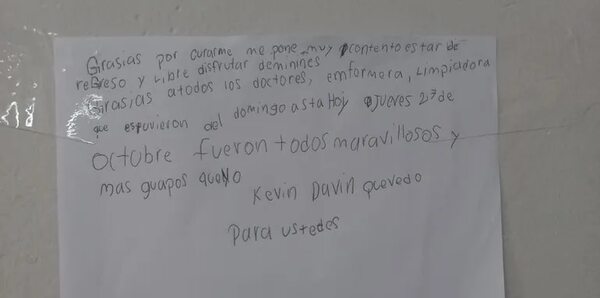 Grasias por curarme me pone muy contento estar de
regreso y Libre disfrutar deminines
Grasias atodos los doctores, emfermera, Limpiadora
que estuvieron del domingo asta Hoy Jueves 27 de
octubre fueron todos maravillosos y
mas guapos que yo
Kevin Davin Quevedo
Para ustedes